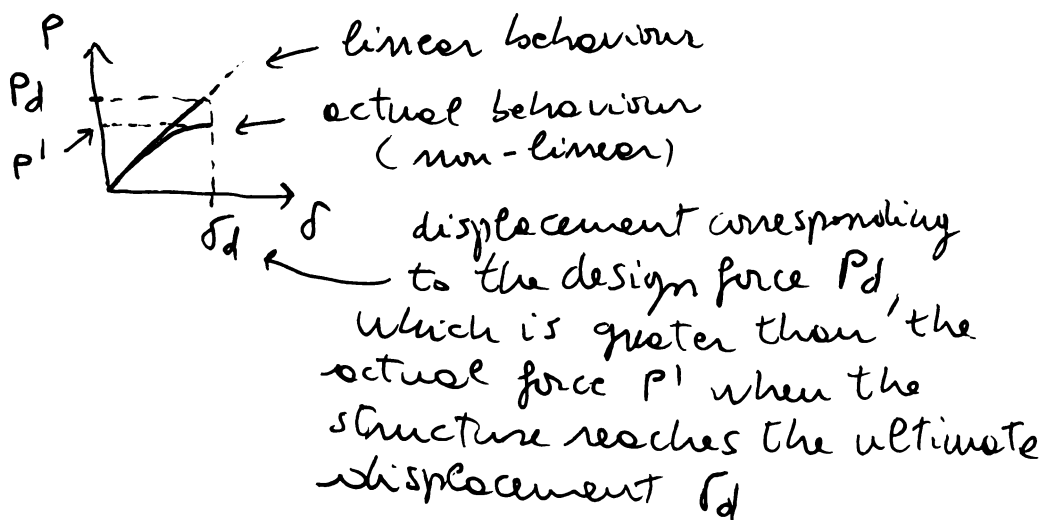 P
linear behaviour
Pd
actual behaviour
P'
(non-linear)
δd
δ
displacement corresponding
to the design force Pd,
which is greater than the
actual force P' when the
structure reaches the ultimate
displacement δd